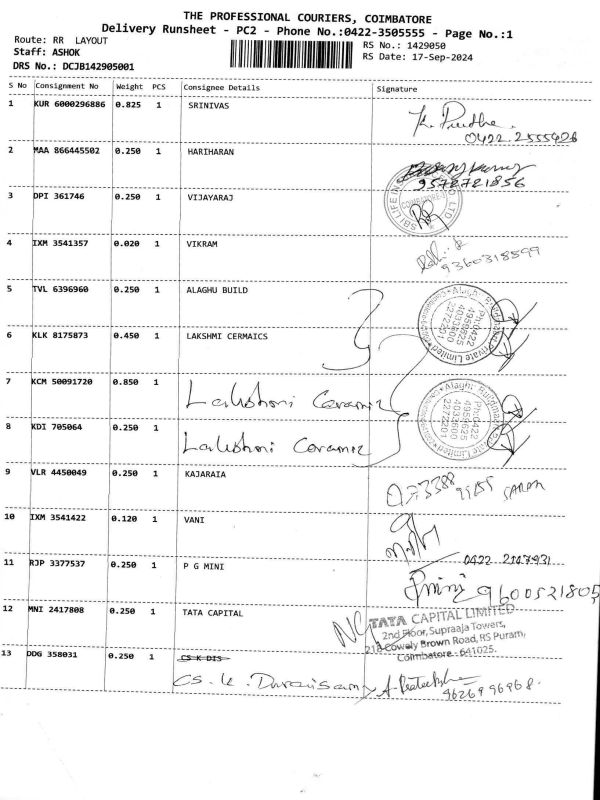 THE PROFESSIONAL COURIERS, COIMBATORE
Delivery Runsheet - PC2 - Phone No.:0422-3505555 - Page No.:1
Route: RR LAYOUT
RS No.: 1429050
Staff: ASHOK
RS Date: 17-Sep-2024
DRS No.: DCJB142905001
S No Consignment No Weight PCS Consignee Details Signature
1 KUR 6000296886 0.825 1 SRINIVAS
0422 2555426
2 MAA 866445502 0.250 1 HARIHARAN
9578721856
3 DPI 361746 0.250 1 VIJAYARAJ
SBI LIFE
4 IXM 3541357 0.020 1 VIKRAM
9360318599
5 TVL 6396960 0.250 1 ALAGHU BUILD
6 KLK 8175873 0.450 1 LAKSHMI CERMAICS
Ph:0422
4959625
4033600
3272201
7 KCM 50091720 0.850 1 Lakshmi Ceramic
8 KDI 705064 0.250 1 Lakshmi Ceramic
Ph:0422
4959625
4033600
3272201
9 VLR 4450049 0.250 1 KAJARAIA
10 IXM 3541422 0.120 1 VANI
0422 2147931
11 RJP 3377537 0.250 1 P G MINI
9600521805
12 MNI 2417808 0.250 1 TATA CAPITAL
TATA CAPITAL LIMITED
2nd Floor, Supraaja Towers,
218 Cowely Brown Road, RS Puram,
Coimbatore - 641025.
13 DDG 358031 0.250 1 CS K DIS
CS. K. Duraisamy
9626996968.